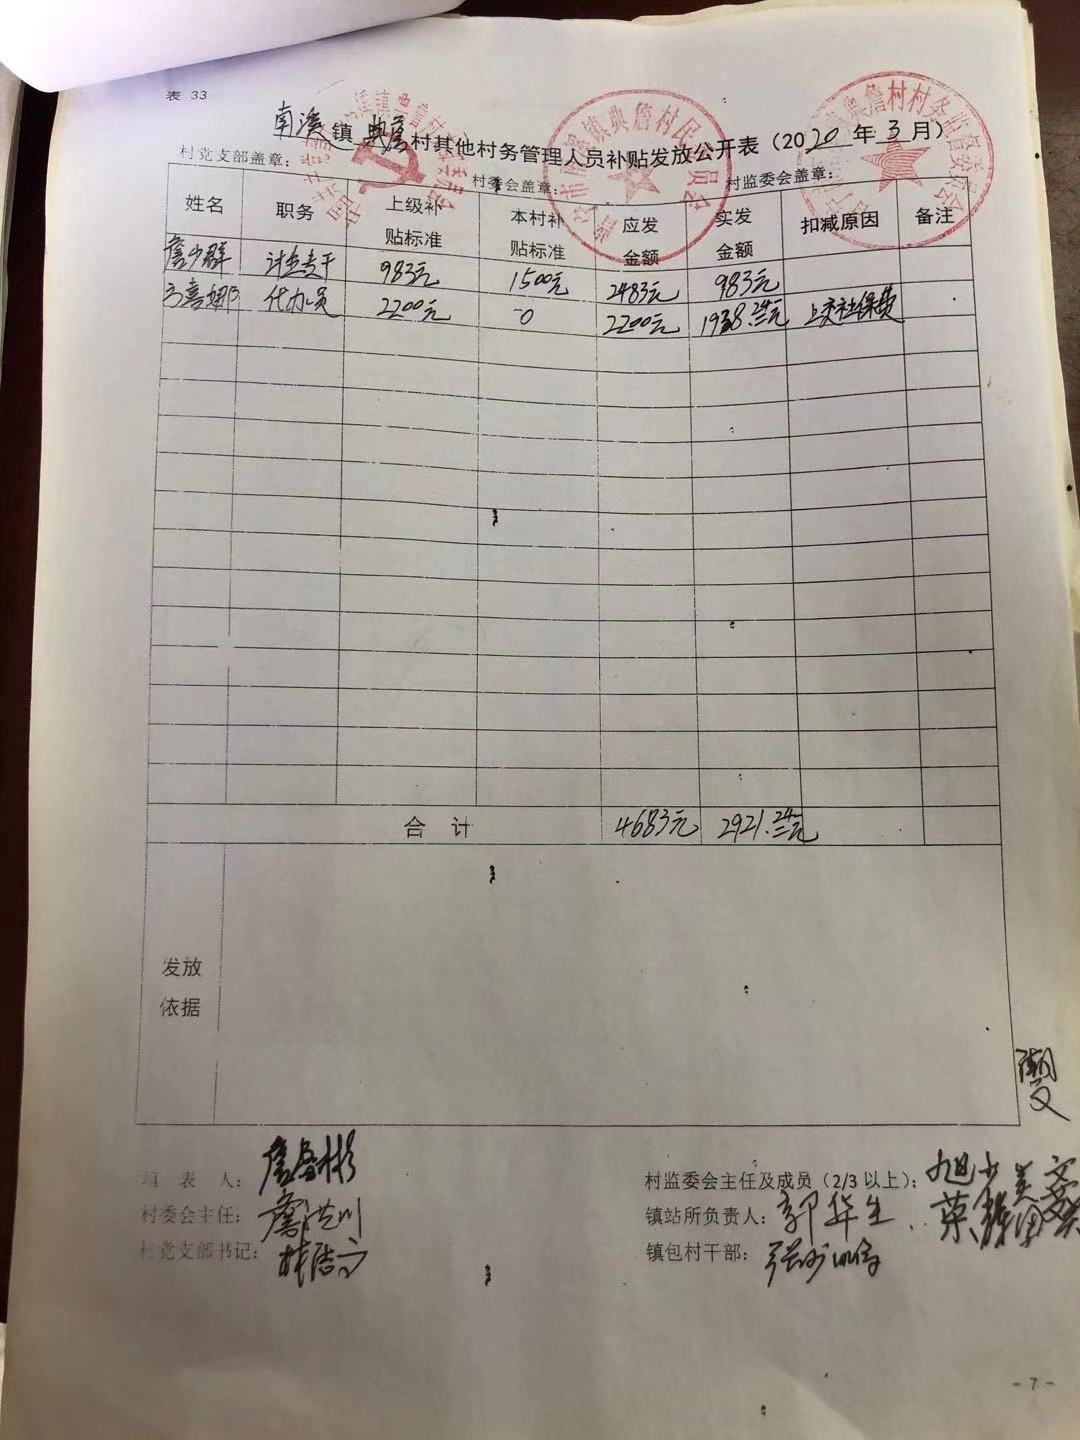 表 33
南溪镇典詹村其他村务管理人员补贴发放公开表（2020年3月）
村党支部盖章： 村委会盖章： 村监委会盖章：
姓名 职务 上级补贴标准 本村补贴标准 应发金额 实发金额 扣减原因 备注
詹少群 计生专干 983元 1500元 2483元 983元
方喜娜 代办员 2200元 0 2200元 1938.24元 上交社保费
合 计 4683元 2921.24元
发放
依据
填 表 人：
村委会主任：
村党支部书记：
村监委会主任及成员（2/3 以上）：
镇站所负责人：郭华生
镇包村干部：
- 7 -